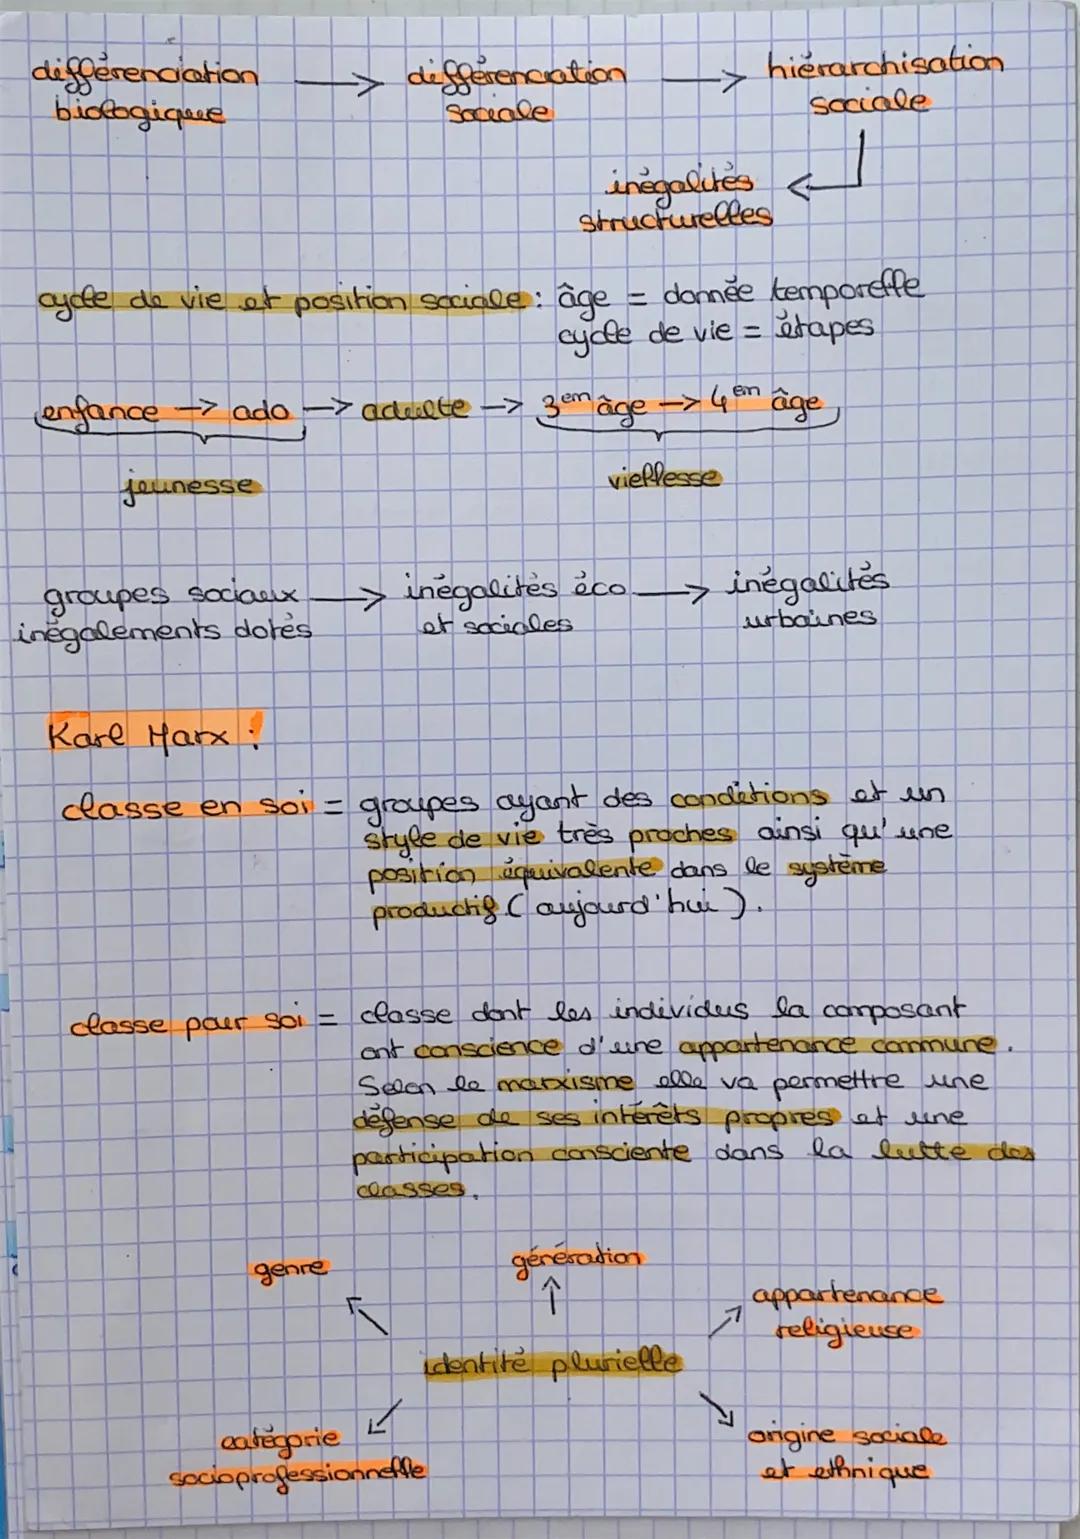 différenciation → différenciation → hiérarchisation
biologique sociale sociale
inégalités ←
structurelles
cycle de vie et position sociale : âge = donnée temporelle
cycle de vie = étapes
enfance → ado → adulte → 3em âge → 4em âge
jeunesse vieillesse
groupes sociaux → inégalités éco → inégalités
inégalements dotés et sociales urbaines
Karl Marx :
classe en soi = groupes ayant des conditions et un
style de vie très proches ainsi qu'une
position équivalente dans le système
productif (aujourd'hui).
classe pour soi = classe dont les individus la composant
ont conscience d'une appartenance commune.
Selon le marxisme elle va permettre une
défense de ses intérêts propres et une
participation consciente dans la lutte des
classes.
genre génération
appartenance
religieuse
identité plurielle
catégorie origine sociale
socioprofessionnelle et ethnique